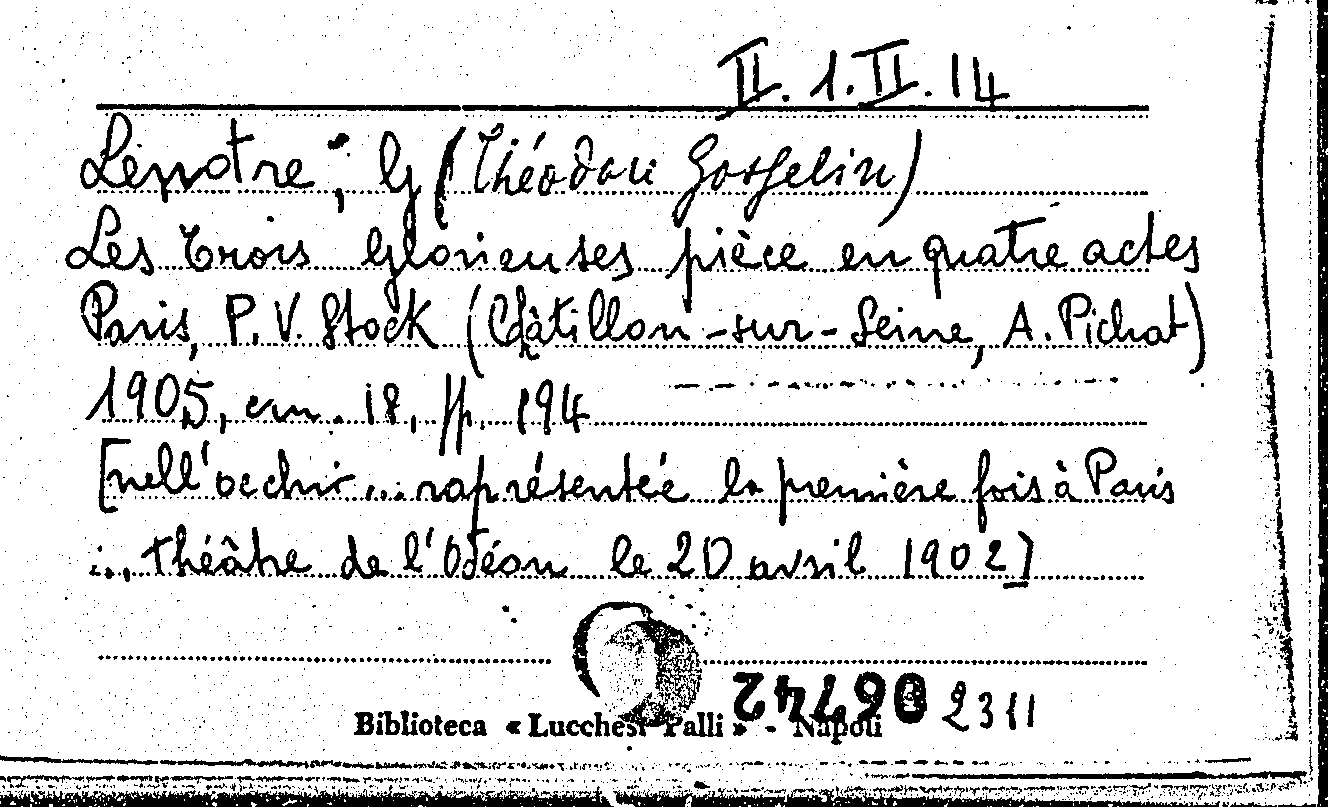 II. 1. II. 14
Lenotre, G (Théodore Gosselin)
Les trois Glorieuses pièce en quatre actes
Paris, P. V. Stock (Châtillon-sur-Seine, A. Pichat)
1905, cm. 18, pp. 194
[nell'occhio ... raprésenteé la première fois à Paris
... théâtre de l'Odéon le 20 avril 1902]
2311
Biblioteca « Lucchesi Palli » - Napoli